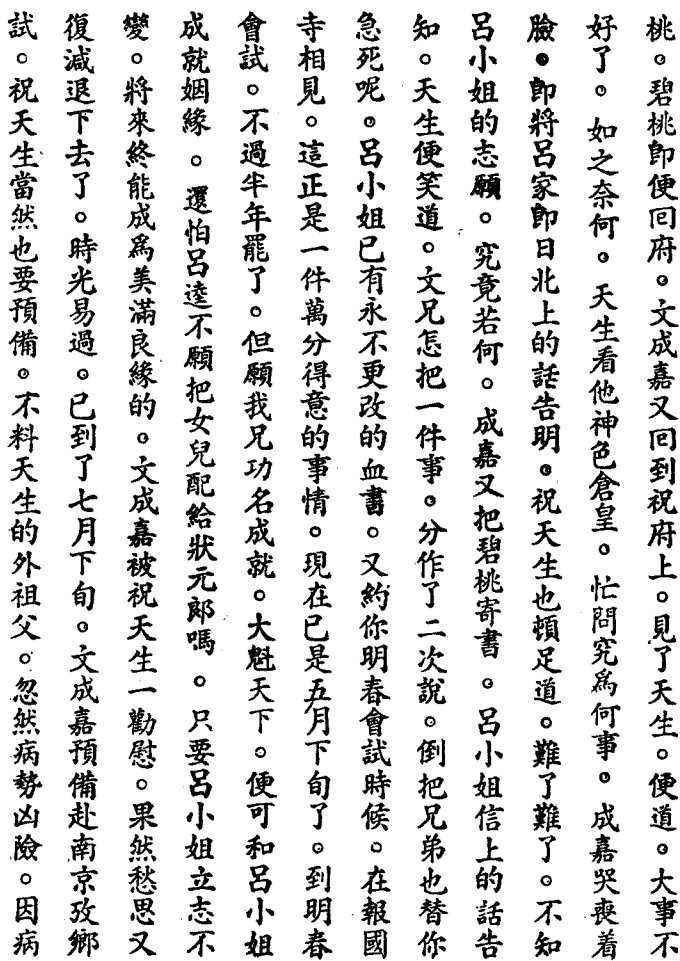 桃。碧桃卽便囘府。文成嘉又囘到祝府上。見了天生。便道。大事不
好了。如之奈何。天生看他神色倉皇。忙問究爲何事。成嘉哭喪着
臉。卽將呂家卽日北上的話告明。祝天生也頓足道。難了難了。不知
呂小姐的志願。究竟若何。成嘉又把碧桃寄書。呂小姐信上的話告
知。天生便笑道。文兄怎把一件事。分作了二次說。倒把兄弟也替你
急死呢。呂小姐已有永不更改的血書。又約你明春會試時候。在報國
寺相見。這正是一件萬分得意的事情。現在已是五月下旬了。到明春
會試。不過半年罷了。但願我兄功名成就。大魁天下。便可和呂小姐
成就姻緣。還怕呂逵不願把女兒配給狀元郎嗎。只要呂小姐立志不
變。將來終能成爲美滿良緣的。文成嘉被祝天生一勸慰。果然愁思又
復減退下去了。時光易過。已到了七月下旬。文成嘉預備赴南京攷鄉
試。祝天生當然也要預備。不料天生的外祖父。忽然病勢凶險。因病